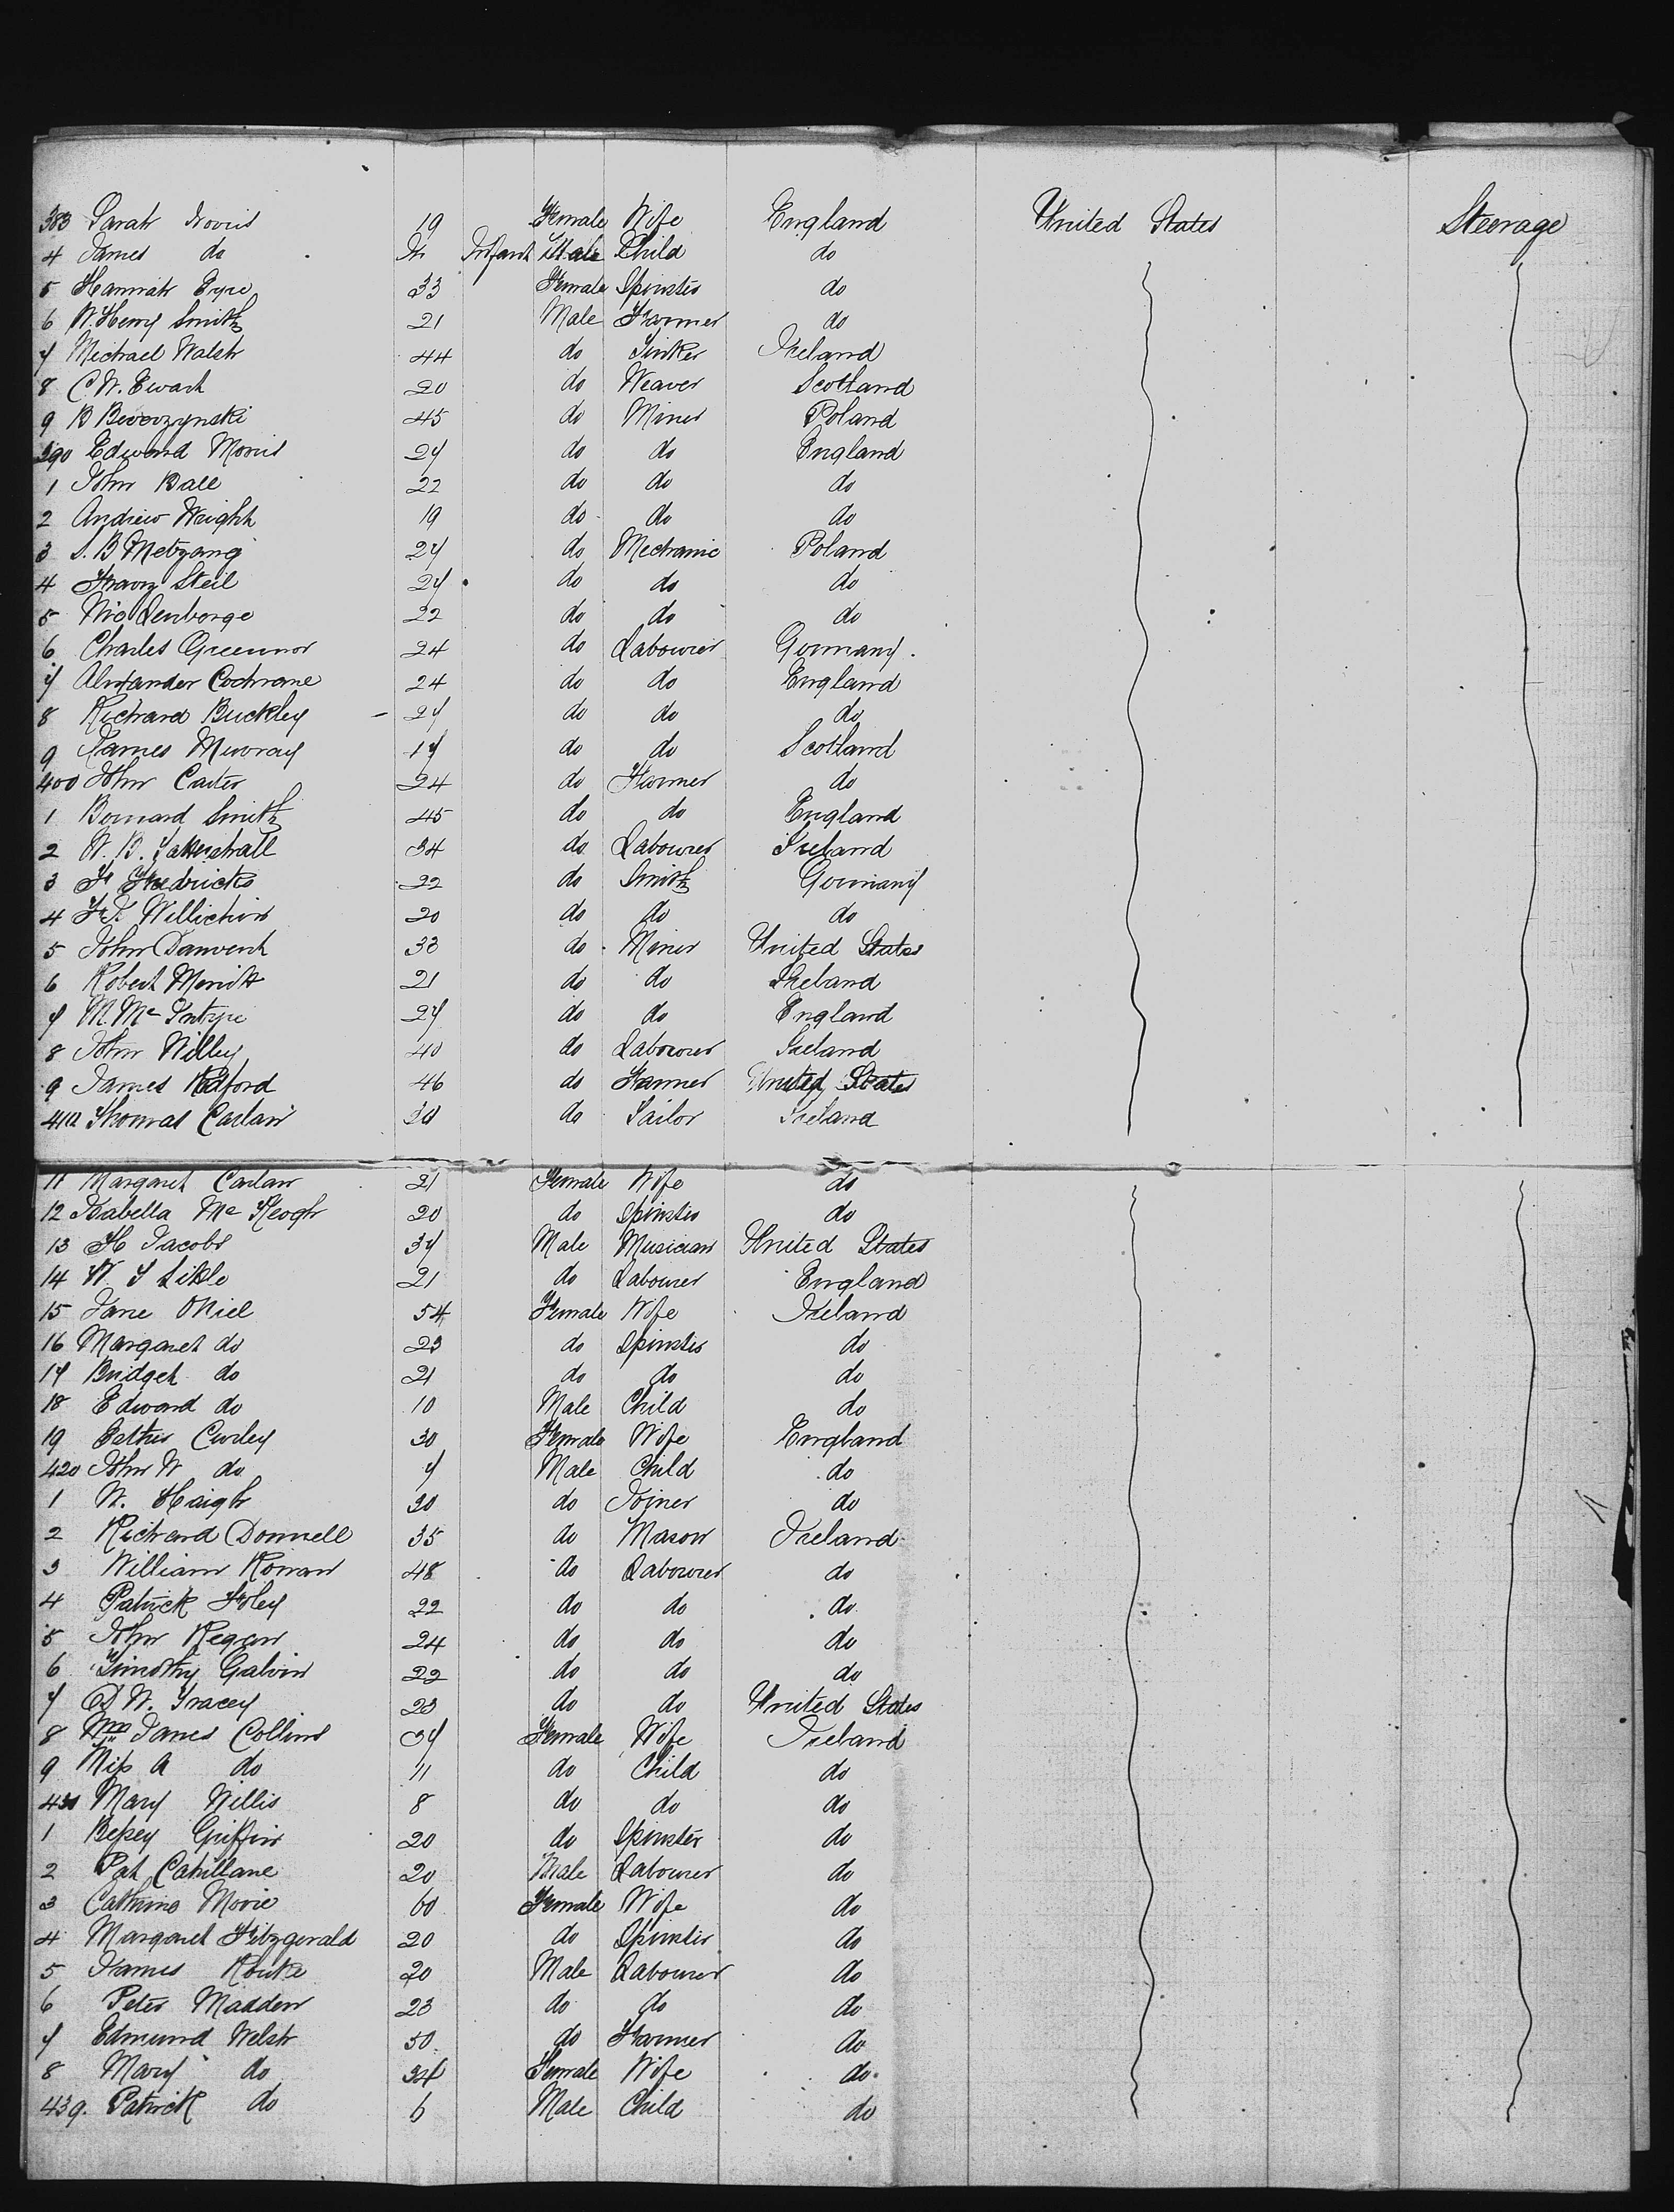 383 Sarah Norris 19 Female Wife England United States Steerage
4 James do In Infant Male Child do
5 Hannah Eyre 33 Female Spinster do
6 W. Henry Smith 21 Male Farmer do
7 Michael Walsh 44 do Tinker Ireland
8 C. W. Ewart 20 do Weaver Scotland
9 B 45 do Miner Poland
390 Edward Morris 27 do do England
1 John Ball 22 do do do
2 Andrew Wright 19 do do do
3 S. B Metzgang 27 do Mechanic Poland
4 Franz Steil 27 do do do
5 22 do do do
6 Charles Greennor 24 do Labourer Germany.
7 Alexander Cochrane 24 do do England
8 Richard Buckley 27 do do do
9 James Murray 17 do do Scotland
400 John Carter 24 do Farmer do
1 Bernard Smith 45 do do England
2 W. B. 34 do Labourer Ireland
3 Fr Fredricks 22 do Smith Germany
4 20 do do do
5 John 33 do Miner United States
6 Robert Merritt 21 do do Ireland
7 M. Mc Intyre 27 do do England
8 John Willey 40 do Labourer Ireland
9 James Redford 46 do Farmer United States
410 Thomas Carlan 30 do Tailor Ireland
11 Margaret Carlan 21 Female Wife do
12 Isabella Mc Keogh 20 do Spinster do
13 H Jacobs 37 Male Musician United States
14 W 21 do Labourer England
15 Jane ONiel 54 Female Wife Ireland
16 Margaret do 23 do Spinster do
17 Bridget do 21 do do do
18 Edward do 10 Male Child do
19 Esther Curley 30 Female Wife England
420 John W do 7 Male Child do
1 W. Haigh 30 do Joiner do
2 Richard Donnell 35 do Mason Ireland
3 William Rowan 48 do Labourer do
4 Patrick Foley 22 do do do
5 John Regan 24 do do do
6 Timothy Galvin 22 do do do
7 D W. Tracey 23 do do United States
8 Mrs James Collins 37 Female Wife Ireland
9 Miss A do 11 do Child do
430 Mary Willis 8 do do do
1 Bessey Griffin 20 do Spinster do
2 Pat Cahillane 20 Male Labourer do
3 Catherine Movie 60 Female Wife do
4 Margaret Fitzgerald 20 do Spinster do
5 James Rourke 20 Male Labourer do
6 Peter Madden 23 do do do
7 Edmund Welsh 50 do Farmer do
8 Mary do 34 Female Wife do
439. Patrick do 6 Male Child do